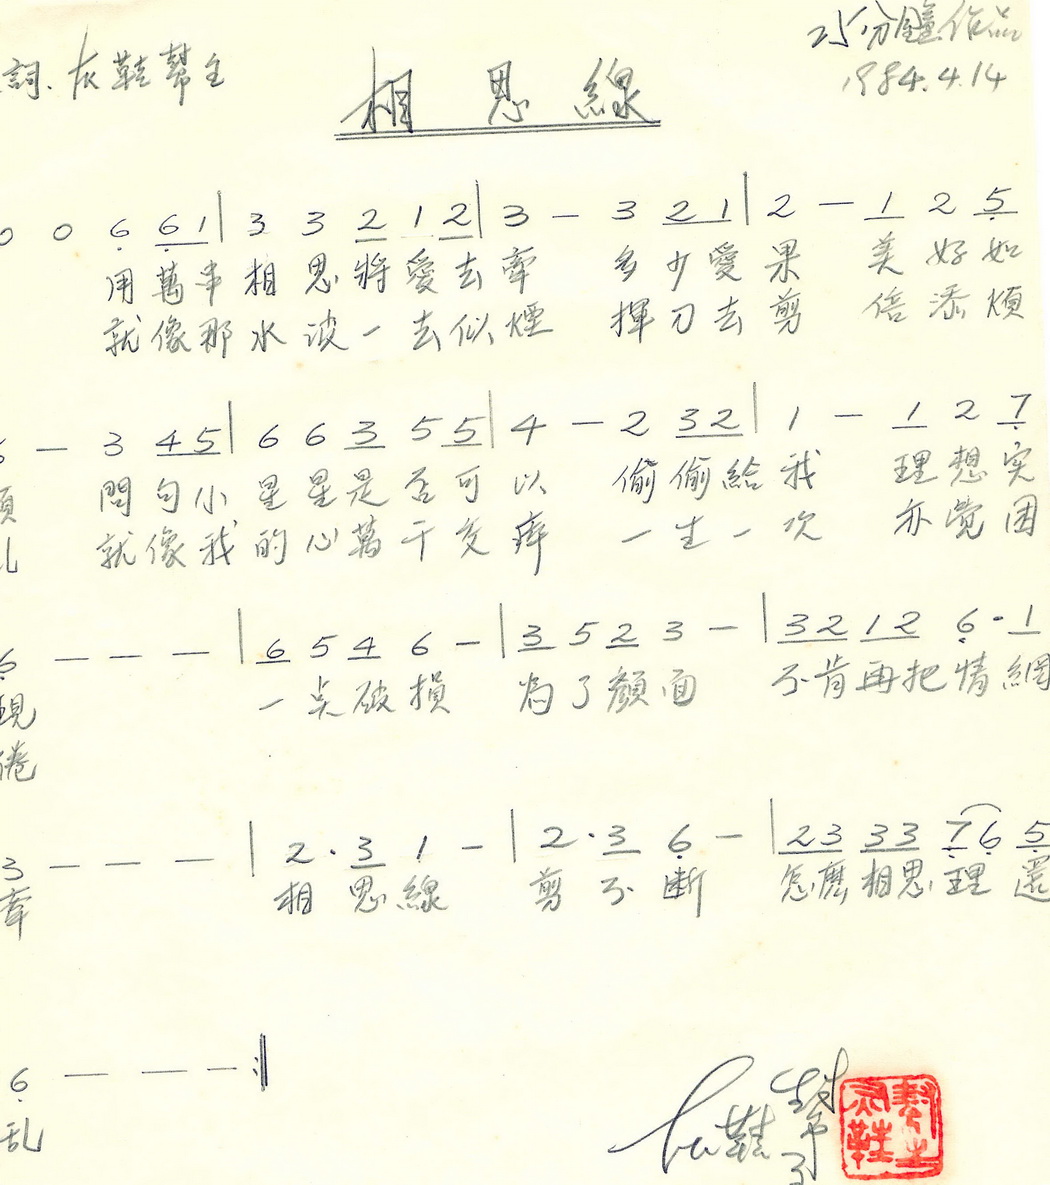 25分鐘作品
詞.灰鞋幫主
1984.4.14
相思線
0 0 6 6 1 | 3 3 2 1 2 | 3 — 3 2 1 | 2 — 1 2 5
用萬串相思將愛去牽 多少愛果 美好如
就像那水波一去似煙 揮刀去剪 倍添煩
— 3 4 5 | 6 6 3 5 5 | 4 — 2 3 2 | 1 — 1 2 7
問句小星星是否可以 偷偷給我 理想实
就像我的心萬千交瘁 一生一次 亦覺困
6 — — — | 6 5 4 6 — | 3 5 2 3 — | 3 2 1 2 6 · 1
現 一点破損 為了顏面 不肯再把情網
倦
3 — — — | 2 · 3 1 — | 2 · 3 6 — | 2 3 3 3 7 6 5
牽 相思線 剪不断 怎麽相思理還
6 — — — :||
乱
灰鞋幫主